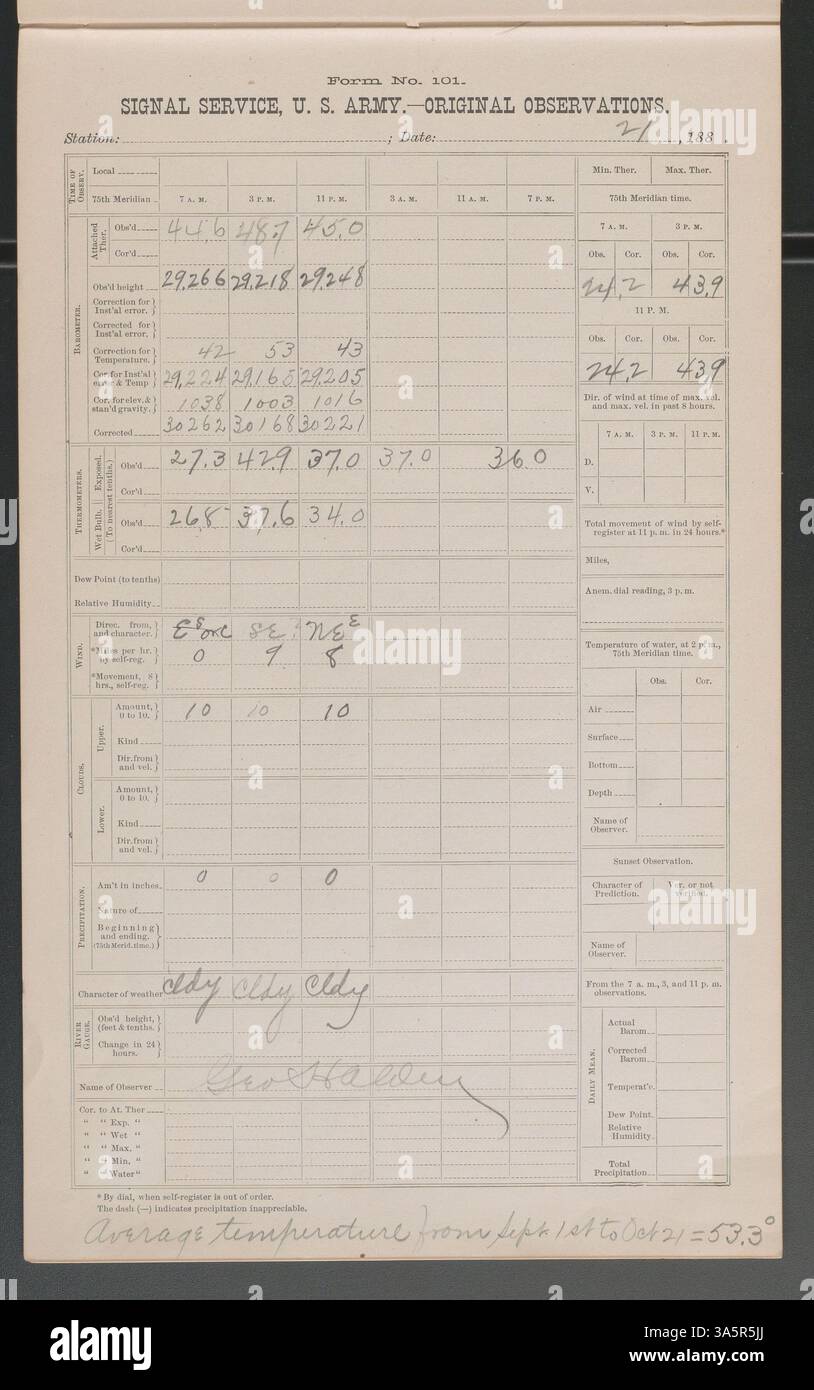 Form No. 101.
SIGNAL SERVICE, U. S. ARMY.—ORIGINAL OBSERVATIONS.
Station: ; Date: 21 , 188 .
TIME OF OBSERV.
Local
75th Meridian 7 A. M. 3 P. M. 11 P. M. 3 A. M. 11 A. M. 7 P. M.
BAROMETER.
Attached Ther.
Obs'd 44.6 48.7 45.0
Cor'd
Obs'd height 29.266 29.218 29.248
Correction for Inst'al error.
Corrected for Inst'al error.
Correction for Temperature. 42 53 43
Cor. for Inst'al error & Temp 29.224 29.165 29.205
Cor. for elev. & stan'd gravity. 1038 1003 1016
Corrected 30262 30168 30221
THERMOMETERS.
(To nearest tenths.)
Exposed.
Obs'd 27.3 42.9 37.0 37.0 36.0
Cor'd
Wet Bulb.
Obs'd 26.8 37.6 34.0
Cor'd
Dew Point (to tenths)
Relative Humidity
WIND.
Direc. from, and character. SE
*Miles per hr. by self-reg. 0 9 8
*Movement, 8 hrs., self-reg.
CLOUDS.
Upper.
Amount, 0 to 10. 10 10 10
Kind
Dir. from and vel.
Lower.
Amount, 0 to 10.
Kind
Dir. from and vel.
PRECIPITATION.
Am't in inches. 0 0 0
Nature of
Beginning and ending. (75th Merid. time.)
Character of weather cldy cldy cldy
RIVER GAUGE.
Obs'd height, (feet & tenths.)
Change in 24 hours.
Name of Observer Geo S Halden
Cor. to At. Ther
" " Exp. "
" " Wet "
" " Max. "
" " Min. "
" " Water "
* By dial, when self-register is out of order.
The dash (—) indicates precipitation inappreciable.
Average temperature from Sept 1st to Oct 21 = 53.3°
Min. Ther. Max. Ther.
75th Meridian time.
7 A. M. 3 P. M.
Obs. Cor. Obs. Cor.
24.2 43.9
11 P. M.
Obs. Cor. Obs. Cor.
24.2 43.9
Dir. of wind at time of max. vel. and max. vel. in past 8 hours.
7 A. M. 3 P. M. 11 P. M.
D.
V.
Total movement of wind by self-register at 11 p. m. in 24 hours.*
Miles,
Anem. dial reading, 3 p. m.
Temperature of water, at 2 p. m., 75th Meridian time.
Obs. Cor.
Air
Surface
Bottom
Depth
Name of Observer.
Sunset Observation.
Character of Prediction. Ver. or not verified.
Name of Observer.
From the 7 a. m., 3, and 11 p. m. observations.
DAILY MEAN.
Actual Barom.
Corrected Barom.
Temperat'e.
Dew Point.
Relative Humidity.
Total Precipitation
alamy
Image ID: 3A5R5JJ
www.alamy.com